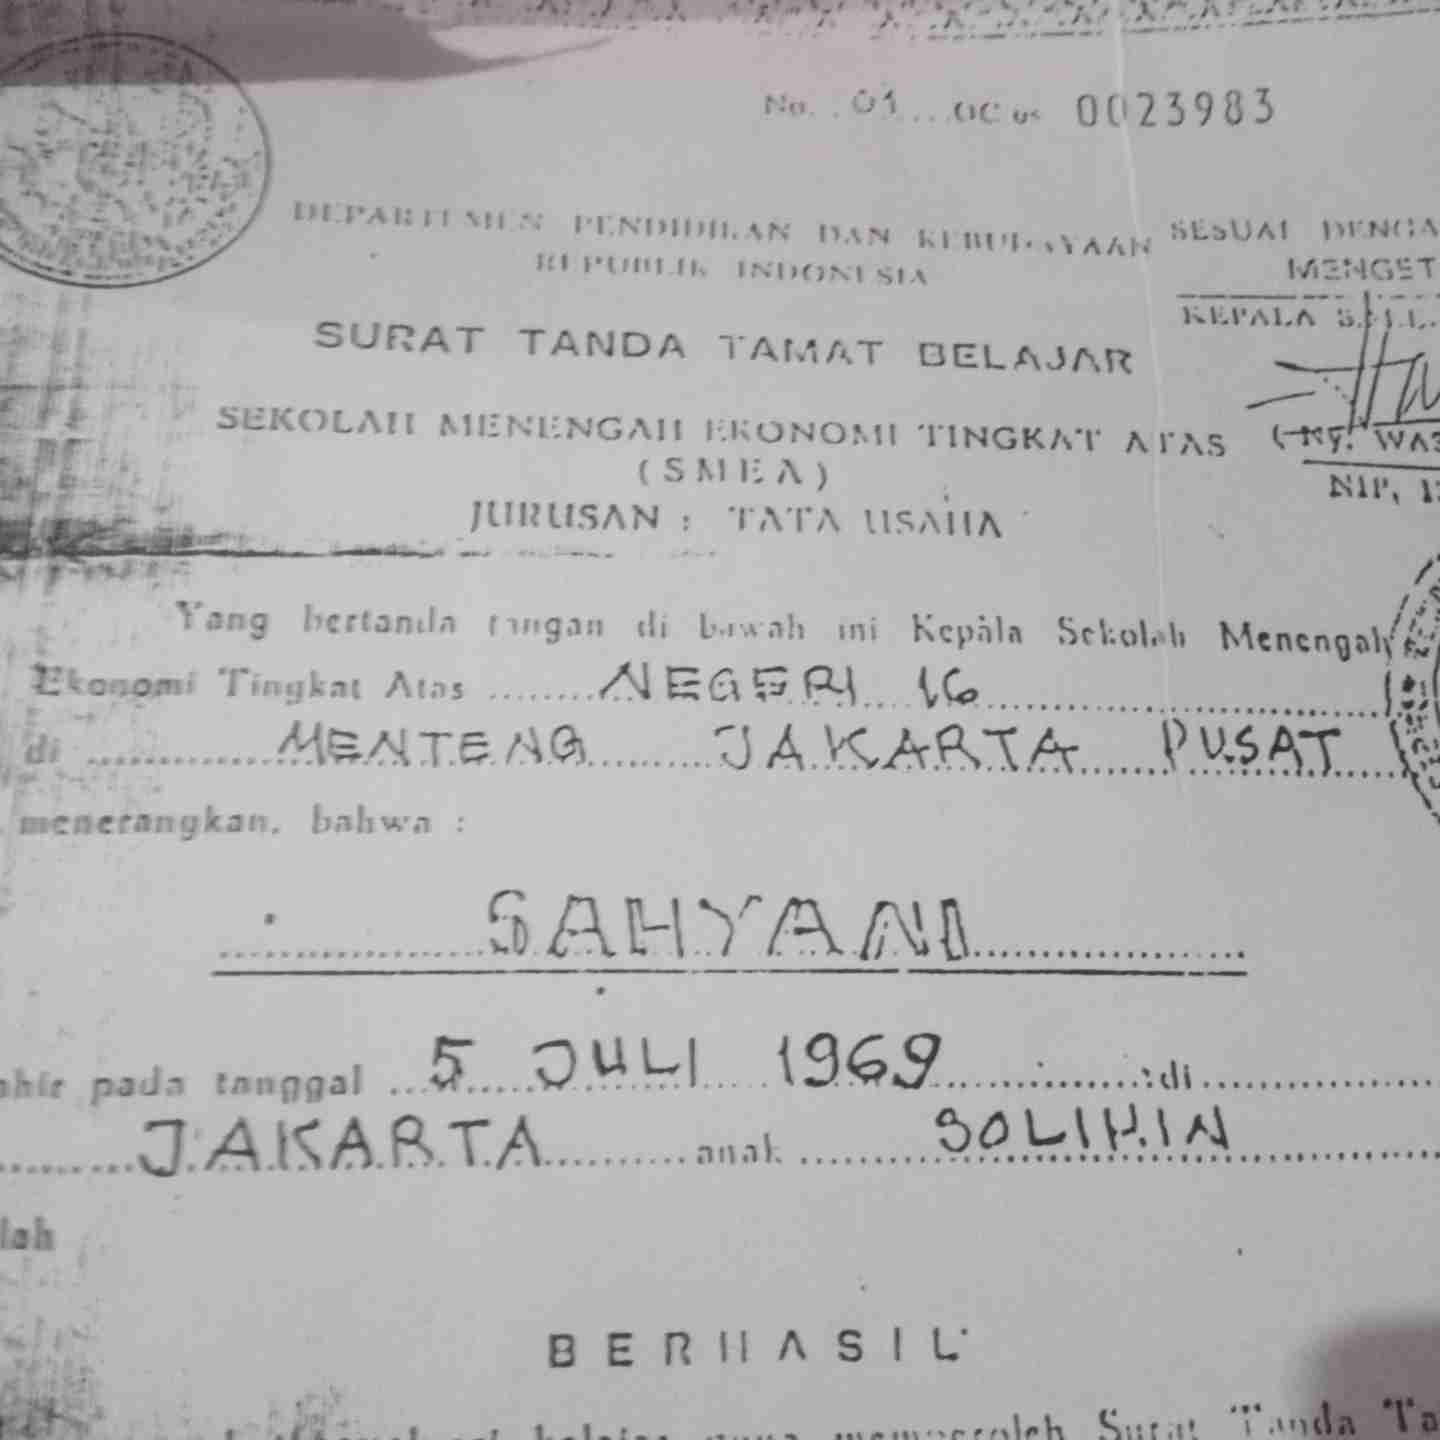 No. 01 OC 0023983
DEPARTEMEN PENDIDIKAN DAN KEBUDAYAAN
REPUBLIK INDONESIA
SESUAI DENGA
MENGET
KEPALA
SURAT TANDA TAMAT BELAJAR
SEKOLAH MENENGAH EKONOMI TINGKAT ATAS
(SMEA)
(Ny. WAS
NIP. 1
JURUSAN : TATA USAHA
Yang bertanda tangan di bawah ini Kepala Sekolah Menengah
Ekonomi Tingkat Atas NEGERI 16
di MENTENG JAKARTA PUSAT
menerangkan, bahwa :
SAHYANI
ahir pada tanggal 5 JULI 1969 di
JAKARTA anak SOLIHIN
lah
BERHASIL
Surat Tanda Ta